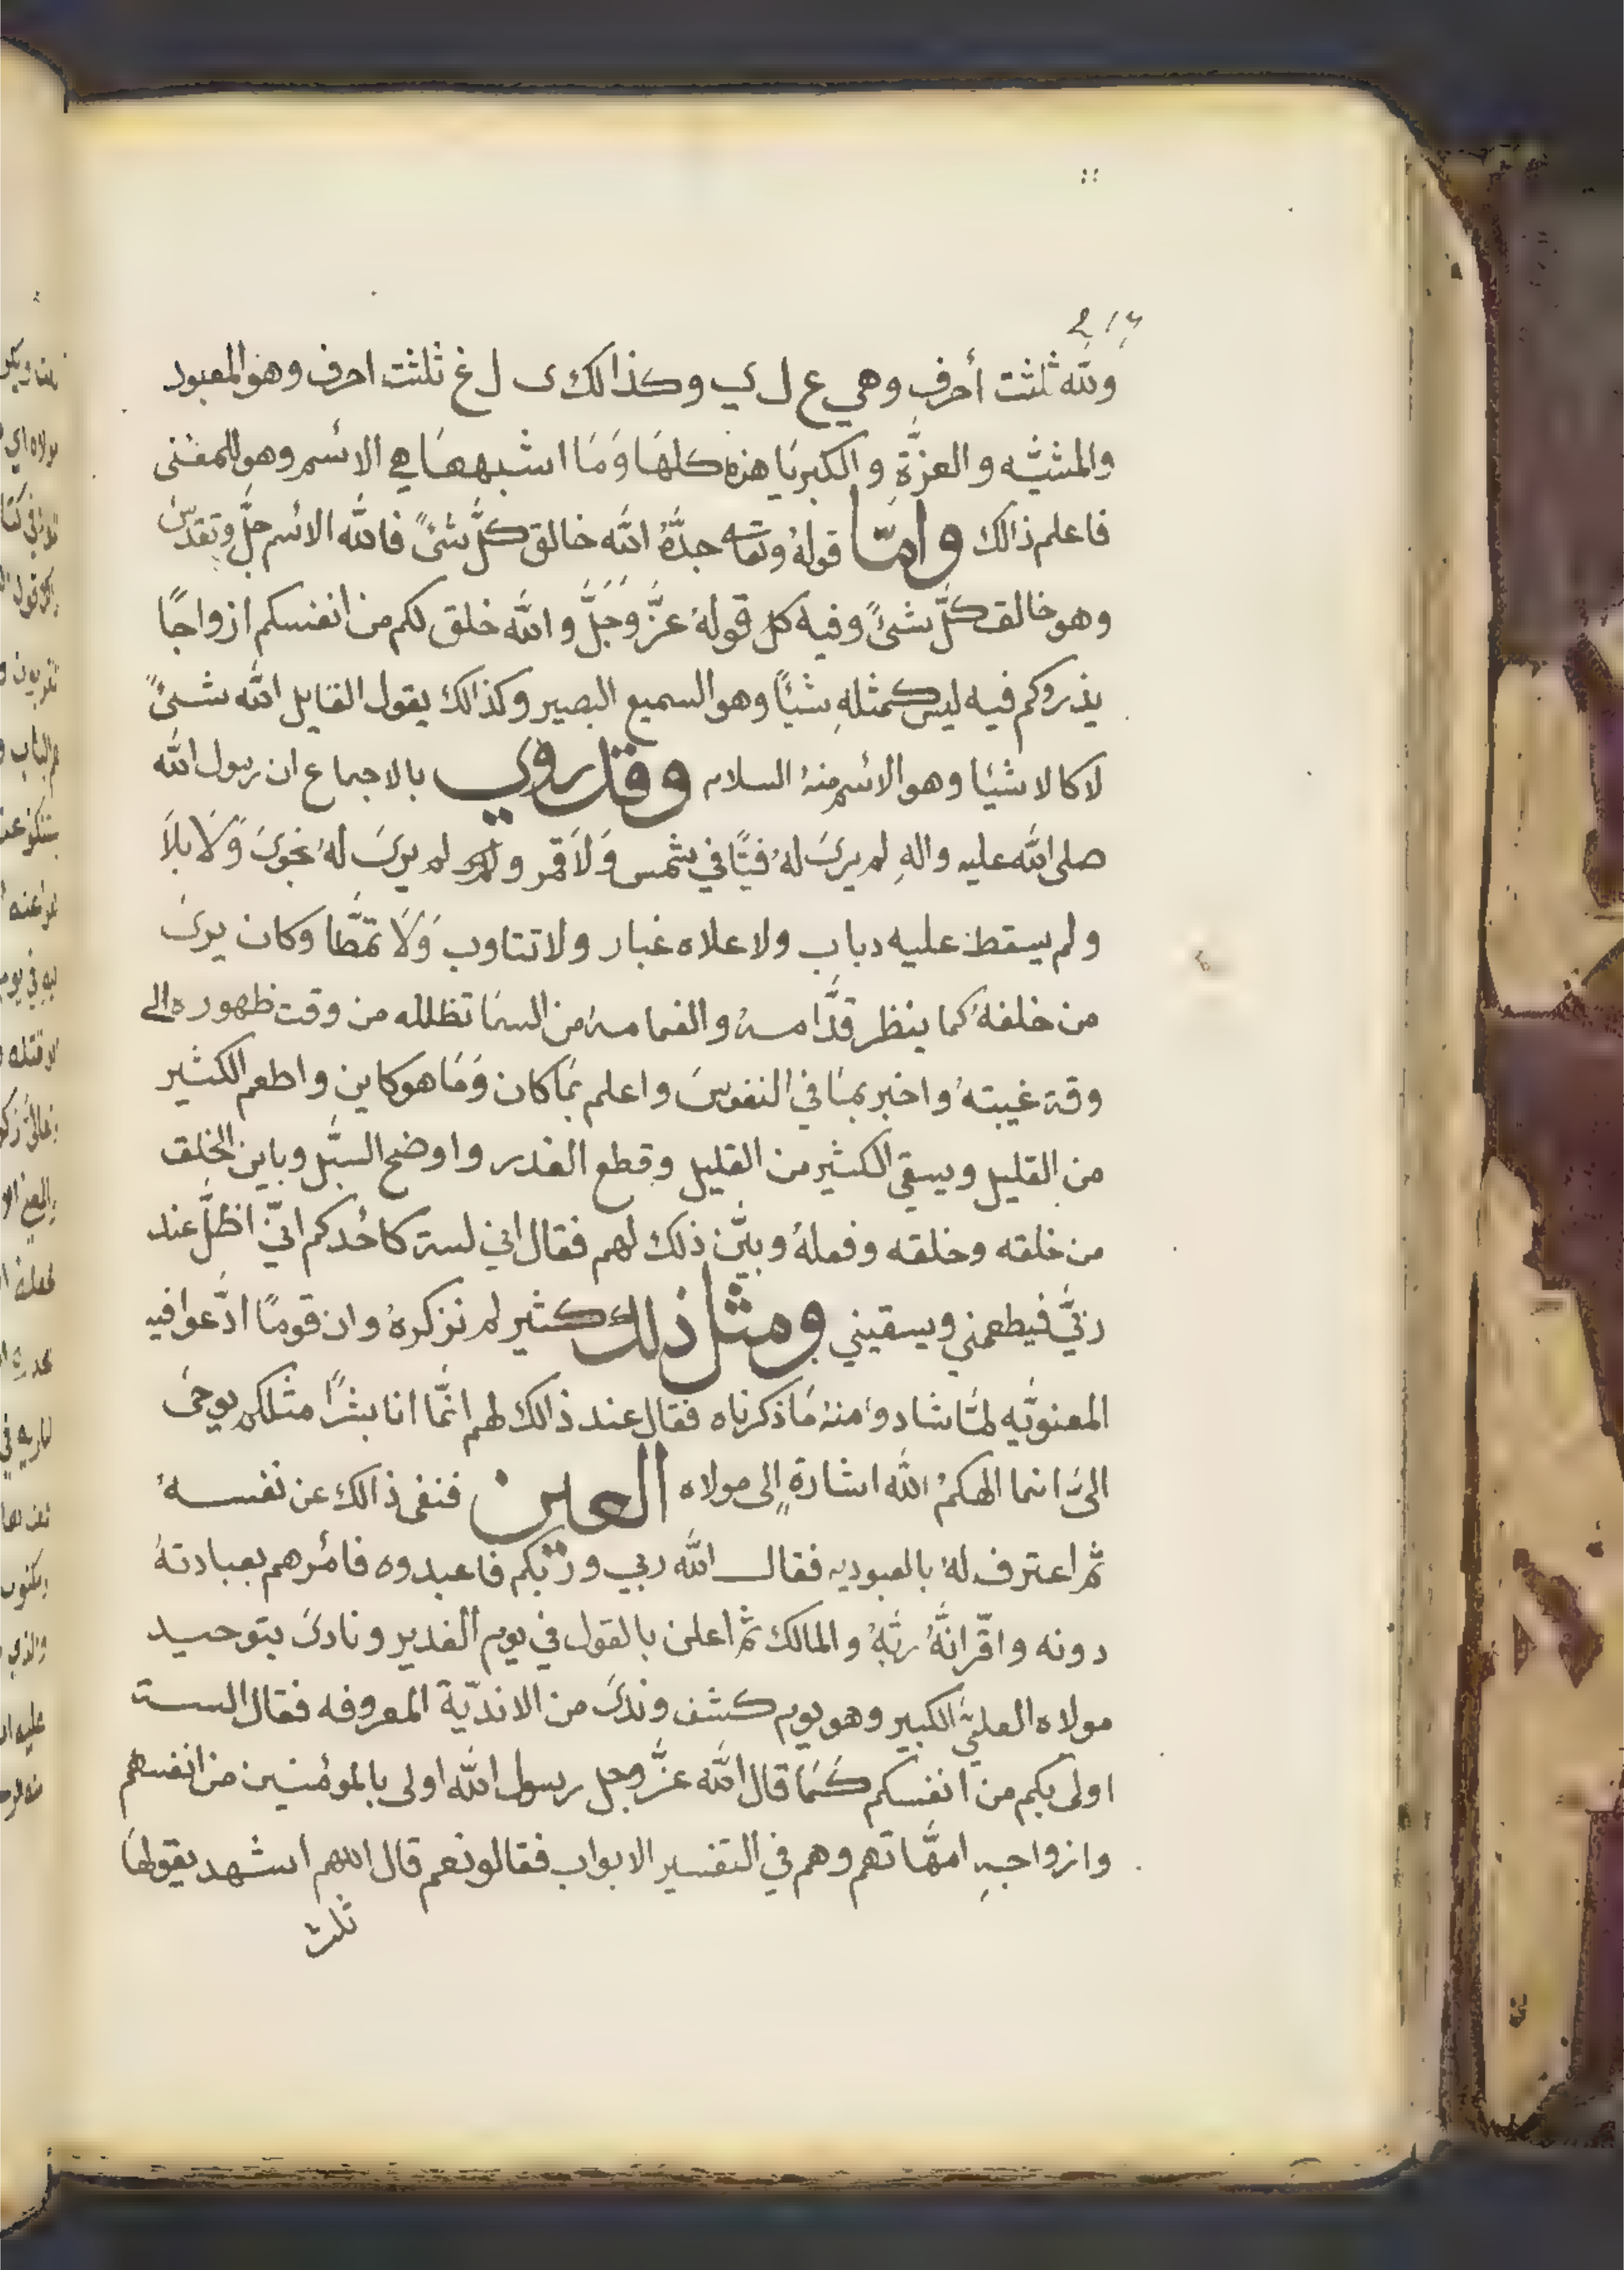 ولله ثلثت أحرفٍ وهي ع ل ي وكذالك ى ل غ ثلثت احرف وهو المعبود
والمشيّه والعزَّةِ والكبريَا هذه كلهَا وَمَا اشبههَا هي الائسم وهو للمعْنى
فاعلم ذالك وامّا قولهُ جدَّهُ الله خالق كلَّ شئً فالله الائسم جلَّ وتقدّس
وهو خالق كلَّ شئً وفيه كل قولهُ عزَّ وَجَلَّ والله خلق لكم من انفسكم ازواجًا
يذروكم فيه ليس كمثلهِ شئاً وهو السميع البصير وكذالك يقول القايل الله شئً
لا كالاشئا وهو الائسم منهُ السلام وقد روي بالاجماع ان رسول الله
صلى الله عليه والهِ لم يرىَ لهُ فيّا في شمس وَلَا قمر لم يرىَ لهُ نجوىَ وَلَا بلاَ
ولم يسقط عليه دباب ولا علاه غبار ولا تتاوب وَلَا تمَّطا وكان يرىَ
من خلفهُ كما ينظر قدَّامهُ والغمامهُ من السمَا تظلله من وقت ظهوره الى
وقة غيبتهُ واخبر بمَا في النفوسَ واعلم بمَا كان وَمَا هو كاين واطعم الكثير
من القليل ويسقي الكثير من القليل وقطع الغدر واوضح السبَّل وباين الخلق
من خلقه وخلقه وفعلهُ وبيَّن ذلك لهم فقال اني لسة كاحُدكم انيّ اظلَّ عند
ربّي فيطعمني ويسقيني ومثل ذلك كثير لم نزكرهُ وان قومًا ادَّعوا فيه
المعنويَّه لمَّا شادوا منهُ مَا ذكرناه فقال عند ذالك لهم انَّما انا بشرًا مثلكم يوحىَ
الىَّ انما الهكمُ الله اشارةٍ إلى مولاه العين فنفى ذالك عن نفسهُ
ثم اعترف لهُ بالعبوديه فقال الله ربي وربّكم فاعبدوه فامُرهم بعبادتهُ
دونه واقّر انهُ ربّهُ والمالك ثم اعلن بالقول في يوم الغدير ونادىَ بتوحيد
مولاه العليَّ الكبير وهو يوم كشف وندىَ من الانديّة المعروفه فقال الست
اولى بكم من انفسكم كمَا قال الله عزَّ وجل رسول الله اولى بالموئمنين من انفسهم
وازواجهِ امهَّاتهم وهم في التفسير الابواب فقالو نعم قال اللهم اشهد يقولهَا
ثلث